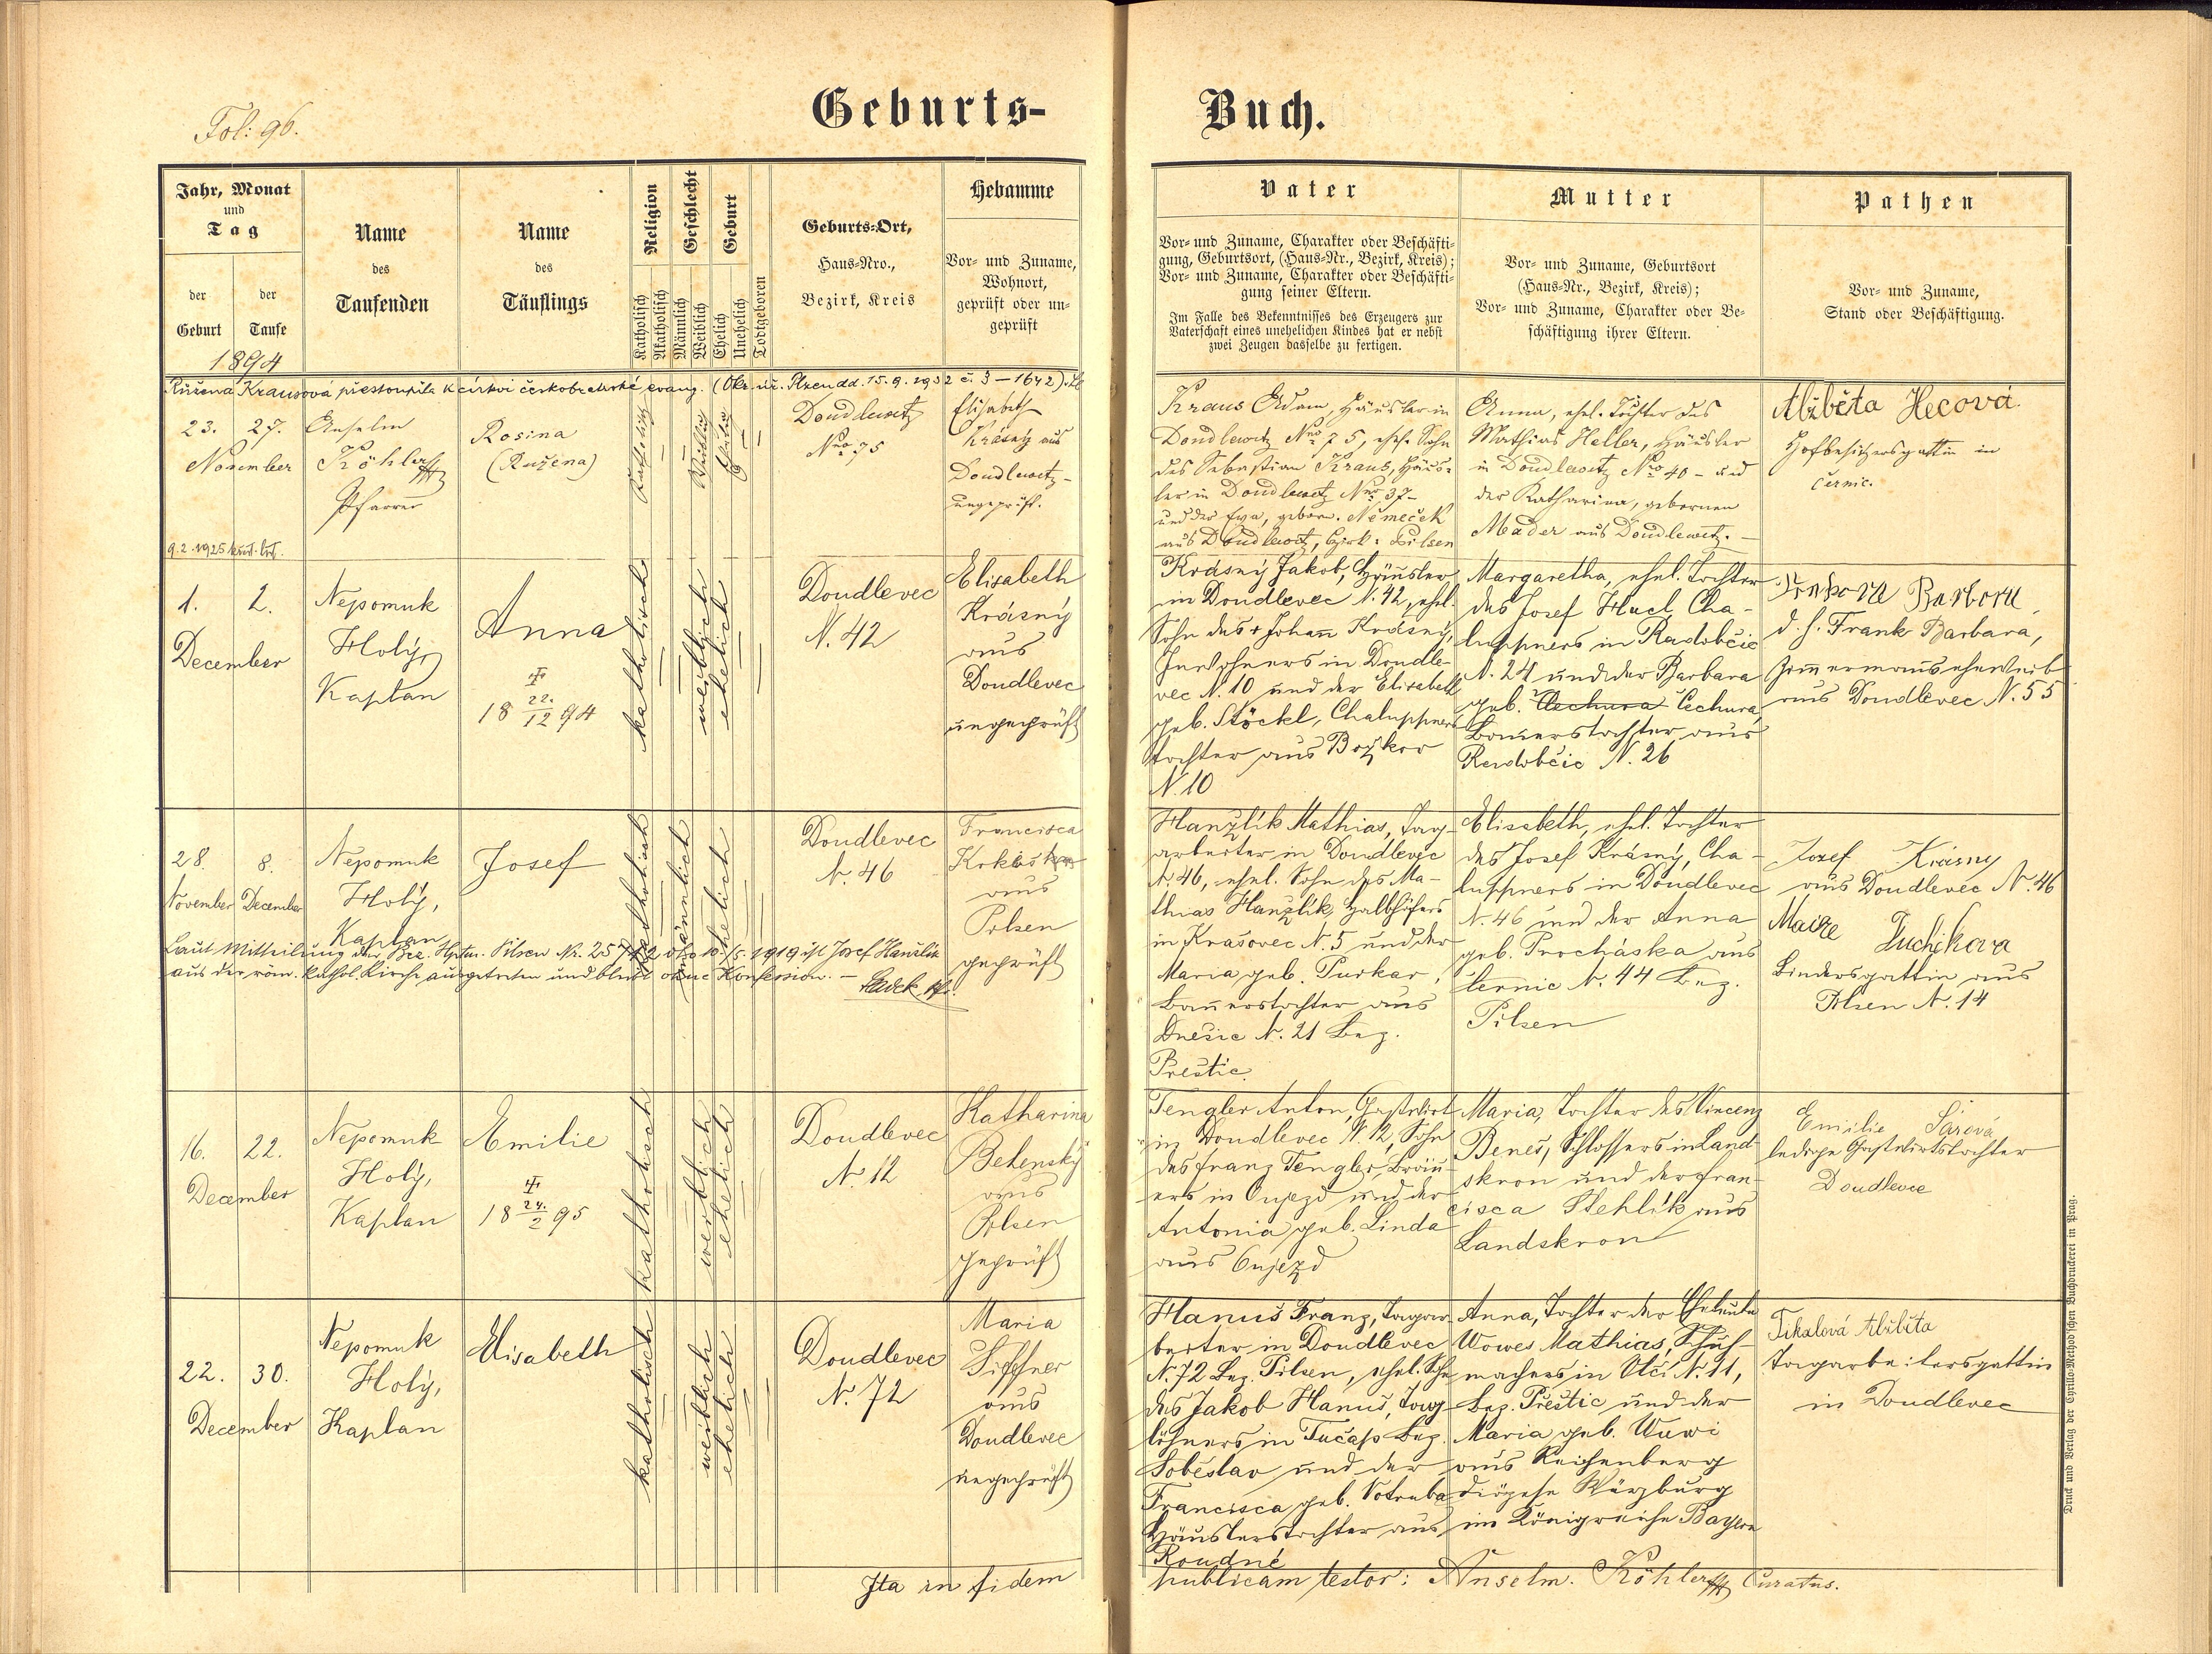 Fol: 96.
Geburts-
Buch.
Jahr, Monat
und
Tag
der
Geburt
der
Taufe
Name
des
Taufenden
Name
des
Täuflings
Religion
Katholisch
Akatholisch
Geschlecht
Männlich
Weiblich
Geburt
Ehelich
Unehelich
Todtgeboren
Geburts-Ort,
Haus-Nro.,
Bezirk, Kreis
Hebamme
Vor- und Zuname,
Wohnort,
geprüft oder un-
geprüft
Vater
Vor- und Zuname, Charakter oder Beschäfti-
gung, Geburtsort, (Haus-Nr., Bezirk, Kreis);
Vor- und Zuname, Charakter oder Beschäfti-
gung seiner Eltern.
Im Falle des Bekenntnisses des Erzeugers zur
Vaterschaft eines unehelichen Kindes hat er nebst
zwei Zeugen dasselbe zu fertigen.
Mutter
Vor- und Zuname, Geburtsort
(Haus-Nr., Bezirk, Kreis);
Vor- und Zuname, Charakter oder Be-
schäftigung ihrer Eltern.
Pathen
Vor- und Zuname,
Stand oder Beschäftigung.
1894
Růžena Krausová přestoupila k církvi českobratrské evang. (Okr. úř. Plzen dd. 15.9.1932 č. 3-1642).
23. 27.
November
Anselm
Köhler
Pfarrer
Rosina
(Ružena)
katholisch
weiblich
ehelich
Doudlewetz
Nro 75
Elisabeth
Krásný aus
Doudlewetz-
ungeprüft.
Kraus Adam, Häusler in
Doudlewetz Nro 75, ehel. Sohn
des Sebastian Kraus, Häus-
ler in Doudlewetz Nro 37-
und der Eva, geborn. Němeček
aus Doudlewetz, Bzirk: Pilsen
Anna, ehel. Tochter des
Mathias Heller, Häusler
in Doudlewetz Nro 40 - und
der Katharina, gebornen
Mader aus Doudlewetz. -
Alžběta Hecová
Hofbesitzersgattin in
Černic.
9.2.1925 křest. list.
1. 2.
December
Nepomuk
Holý,
Kaplan
Anna
18 22./12 94
katholisch
weiblich
ehelich
Doudlevec
N. 42
Elisabeth
Krásný
aus
Doudlevec
ungeprüft
Krásný Jakob, Häusler
in Doudlevec N. 42, ehel.
Sohn des + Johann Krásný,
Inwohners in Doudle-
vec N. 10 und der Elisabeth
geb. Stöckl, Chaluppners
tochter aus Božkov
N. 10
Margaretha, ehel. Tochter
des Josef Hucl, Cha-
luppners in Radobčic
N. 24 und der Barbara
geb. Čechura Čechura
Bauerstochter aus
Radobčic N. 26
Barbora
d. h. Frank Barbara,
Zimmermannseheweib
aus Doudlevec N. 55
28. 8.
November December
Nepomuk
Holý,
Kaplan
Josef
katholisch
männlich
ehelich
Doudlevec
N. 46
Francisca
aus
Pilsen
geprüft
Laut Mitteilung der Bez. Hptm. Pilsen Nr. 25742 dto 10./5. 1919 ist Josef Hanzlík
aus der röm. kathol. Kirche ausgetreten und bleibt ohne Konfession. -
Hanzlík Mathias, Tag-
arbeiter in Doudlevec
N. 46, ehel. Sohn des Ma-
thias Hanzlík, Halbhöfers
in Krašovec N. 5 und der
Maria geb. Purkar,
Bauerstochter aus
Dnešic N. 21 Bez.
Přeštic
Elisabeth, ehel. Tochter
des Josef Krásný, Cha-
luppners in Doudlevec
N. 46 und der Anna
geb. Procháska aus
Černic N. 44 Bez.
Pilsen
Jozef Krásny
aus Doudlevec N. 46
Bindersgattin aus
Pilsen N. 14
16. 22.
December
Nepomuk
Holý,
Kaplan
Emilie
18 24./2 95
katholisch
weiblich
ehelich
Doudlevec
N. 12
Katharina
Belenský
aus
Pilsen
geprüft
Tengler Anton, Gastwirt
in Doudlevec N. 12, Sohn
des Franz Tengler, Bräu-
ers in Oujezd und der
Antonia geb. Linda
aus Oujezd
Maria, Tochter des Vincenz
Beneš, Schlossers in Land-
skron und der Fran-
cisca Stehlík aus
Landskron
Emilie Sárová
ledige Gastwirtstochter
Doudlevec
22. 30.
December
Nepomuk
Holý,
Kaplan
Elisabeth
katholisch
weiblich
ehelich
Doudlevec
N. 72
Maria
Siffner
aus
Doudlevec
ungeprüft
Hanuš Franz, Tagar-
beiter in Doudlevec
N. 72 Bez. Pilsen, ehel. Sohn
des Jakob Hanuš, Tag-
löhners in Tučap Bez.
Soběslav und der
Francisca geb. Votruba
Häuslerstochter aus
Roudné
Anna, Tochter der Eheleute
Wowes Mathias, Schuh-
machers in Vlčí N. 11,
Bez. Přeštic und der
Maria geb. Wuwi
aus Reichenberg
Diözese Würzburg
im Königreiche Bayern
Tikalová Alžběta
Tagarbeitersgattin
in Doudlevec
Ita in fidem
publicam testor: Anselm. Köhler Curatus.
Druck und Verlag der Cyrillo-Method'schen Buchdruckerei in Prag.